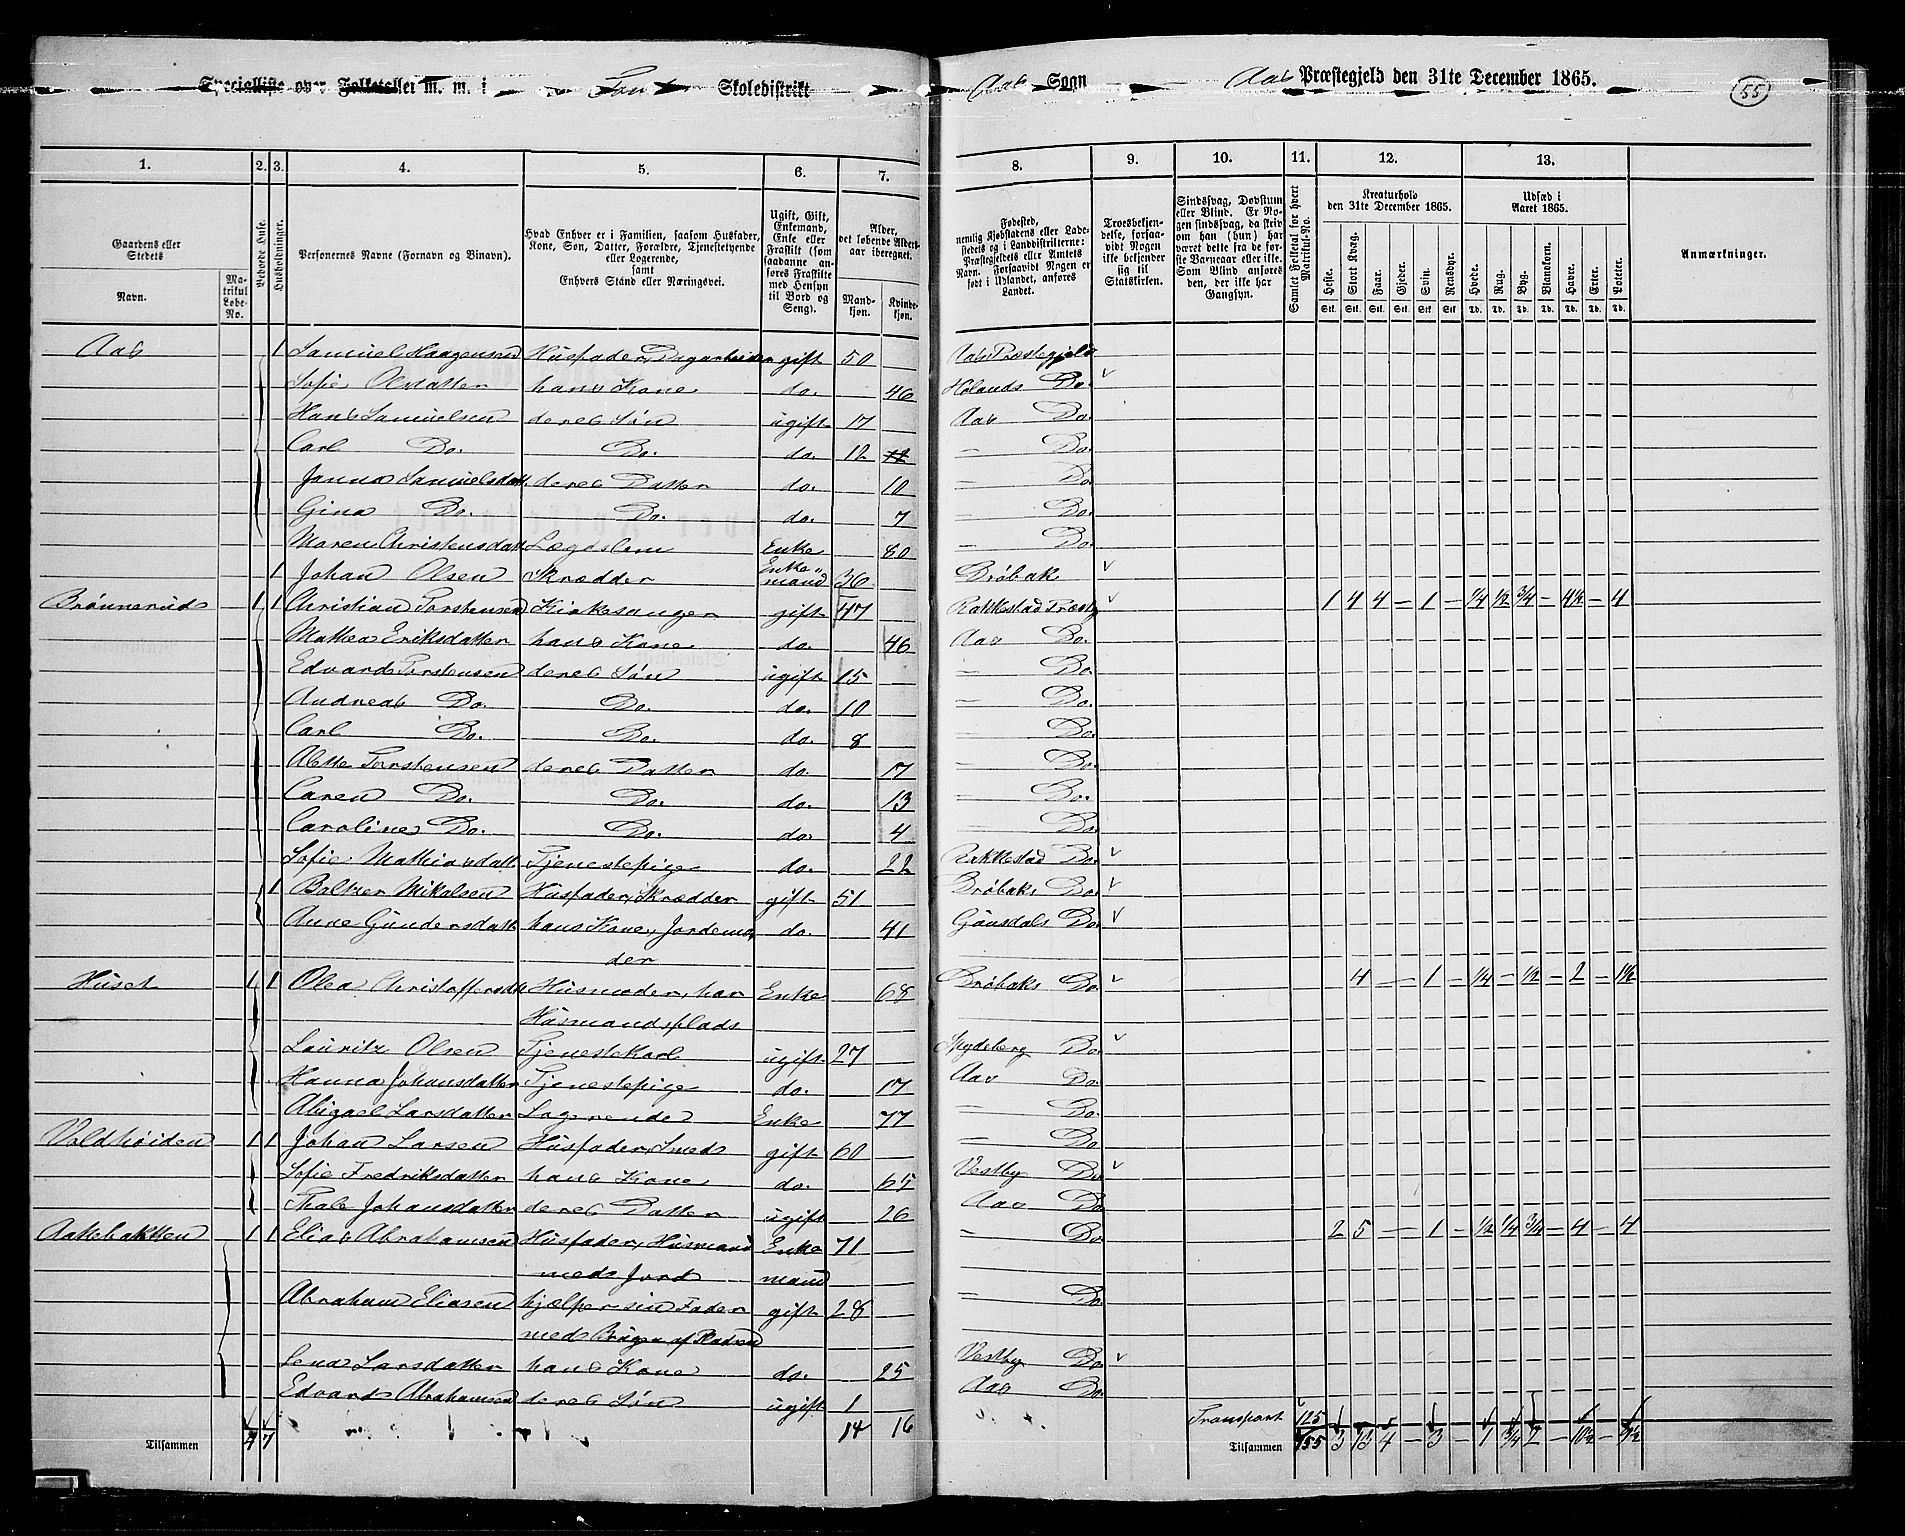 Specialliste over Folketallet m. m. i Skoledistrikt Aas Sogn Aas Præstegjeld den 31te December 1865. 55
1. 2. 3. 4. 5. 6. 7. 8. 9. 10. 11. 12. 13.
Gaardens eller Stedets Navn. Matrikul Løbe-No. Beboede Huse. Husholdninger. Personernes Navne (Fornavn og Binavn). Hvad Enhver er i Familien, saasom Husfader, Kone, Søn, Datter, Forældre, Tjenestetyende eller Logerende, samt Enhvers Stand eller Næringsvei. Ugift, Gift, Enkemand, Enke eller Fraskilt (som saadanne anføres Fraskilte med Hensyn til Bord og Seng). Alder, det løbende Alders-aar iberegnet. Mandkjøn. Kvindekjøn.
Fødested, nemlig Kjøbstadens eller Ladestedets og i Landdistrikterne: Præstegjeldets eller Amtets Navn. Forsaavidt Nogen er født i Udlandet, anføres Landet. Troesbekjendelse, forsaavidt Nogen ikke bekjender sig til Statskirken. Sindssvag, Døvstum eller Blind. Er Nogen sindssvag, da skrives om han (hun) har været dette fra de første Barneaar eller ikke. Som Blind anføres den, der ikke har Gangsyn. Samlet Folketal for hvert Matrikul-No. Kreaturhold den 31te December 1865. Udsæd i Aaret 1865. Anmærkninger.
Heste. Stort Kvæg. Faar. Gjeder. Svin. Rensdyr. Hvede. Rug. Byg. Blandkorn. Havre. Erter. Poteter.
Stk. Stk. Stk. Stk. Stk. Stk. Td. Td. Td. Td. Td. Td. Td.
Aas 1 Samuel Haagensen Husfader, Dagarbeider gift 50 Aas Præstegjeld
Sofie Olsdatter hans Kone do. 46 Hølands Do.
Hans Samuelsen deres Søn ugift 17 Aas Do.
Carl Do. Do. do. 12 – Do.
Janna Samuelsdatt. deres Datter do. 10 – Do.
Gina Do. Do. do. 7 – Do.
Maren Christensdatt Lægdslem Enke 80 – Do.
1 Johan Olsen Skrædder Enkemand 36 Drøbak
Brønnerud 1 1 Christian Torstensen Kirkesanger gift 47 Rakkestad Præstg 1 4 4 – 1 – 1/4 1/2 3/4 – 4 1/2 – 4
Mathea Eriksdatter hans Kone do. 46 Aas Do.
Edvard Torstensen deres Søn ugift 15 – Do.
Andreas Do. Do. do. 10 – Do.
Carl Do. Do. do. 8 – Do.
Alette Torstensen deres Datter do. 17 – Do.
Caren Do. Do. do. 13 – Do.
Caroline Do. Do. do. 4 – Do.
Sofie Mathiasdatt Tjenestepige do. 22 Rakkestad Do.
1 Baltzer Mikalsen Husfader, Skrædder gift 51 Drøbaks Do.
Anne Gundersdatt hans Kone, Jordemoder do. 41 Do.
Huset 1 1 Olea Christoffersdtt Husmoder, har Enke 68 Drøbaks Do. 4 – 1 – 1/4 – 1/2 – 2 – 1 1/2
Husmandsplads
Lauritz Olsen Tjenestekarl ugift 27 Spydeberg Do.
Hanna Johansdatter Tjenestepige do. 17 Aas Do.
Abigael Larsdatter Logerende Enke 77 – Do.
Voldhøiden 1 1 Johan Larsen Husfader, Smed gift 60 – Do
Sofie Fredriksdatter hans Kone do. 65 Vestby Do
Thale Johansdatter deres Datter ugift 26 Aas Do
Aakebakken 1 1 Elias Abrahamsen Husfader, Husmand Enke 71 – Do 2 5 – 1 – 1/2 1/4 3/4 – 4 – 4
med Jord mand
Abraham Eliasen hjælper sin Fader gift 28 – Do
med Brugen af Pladsen
Lena Larsdatter hans Kone do. 25 Vestby Do
Edvard Abrahamsen deres Søn ugift 1 Aas Do.
Transport 125
Tilsammen 4 7 14 16 Tilsammen 155 3 13 4 – 3 – 1 3/4 2 – 10 1/2 – 9 1/2